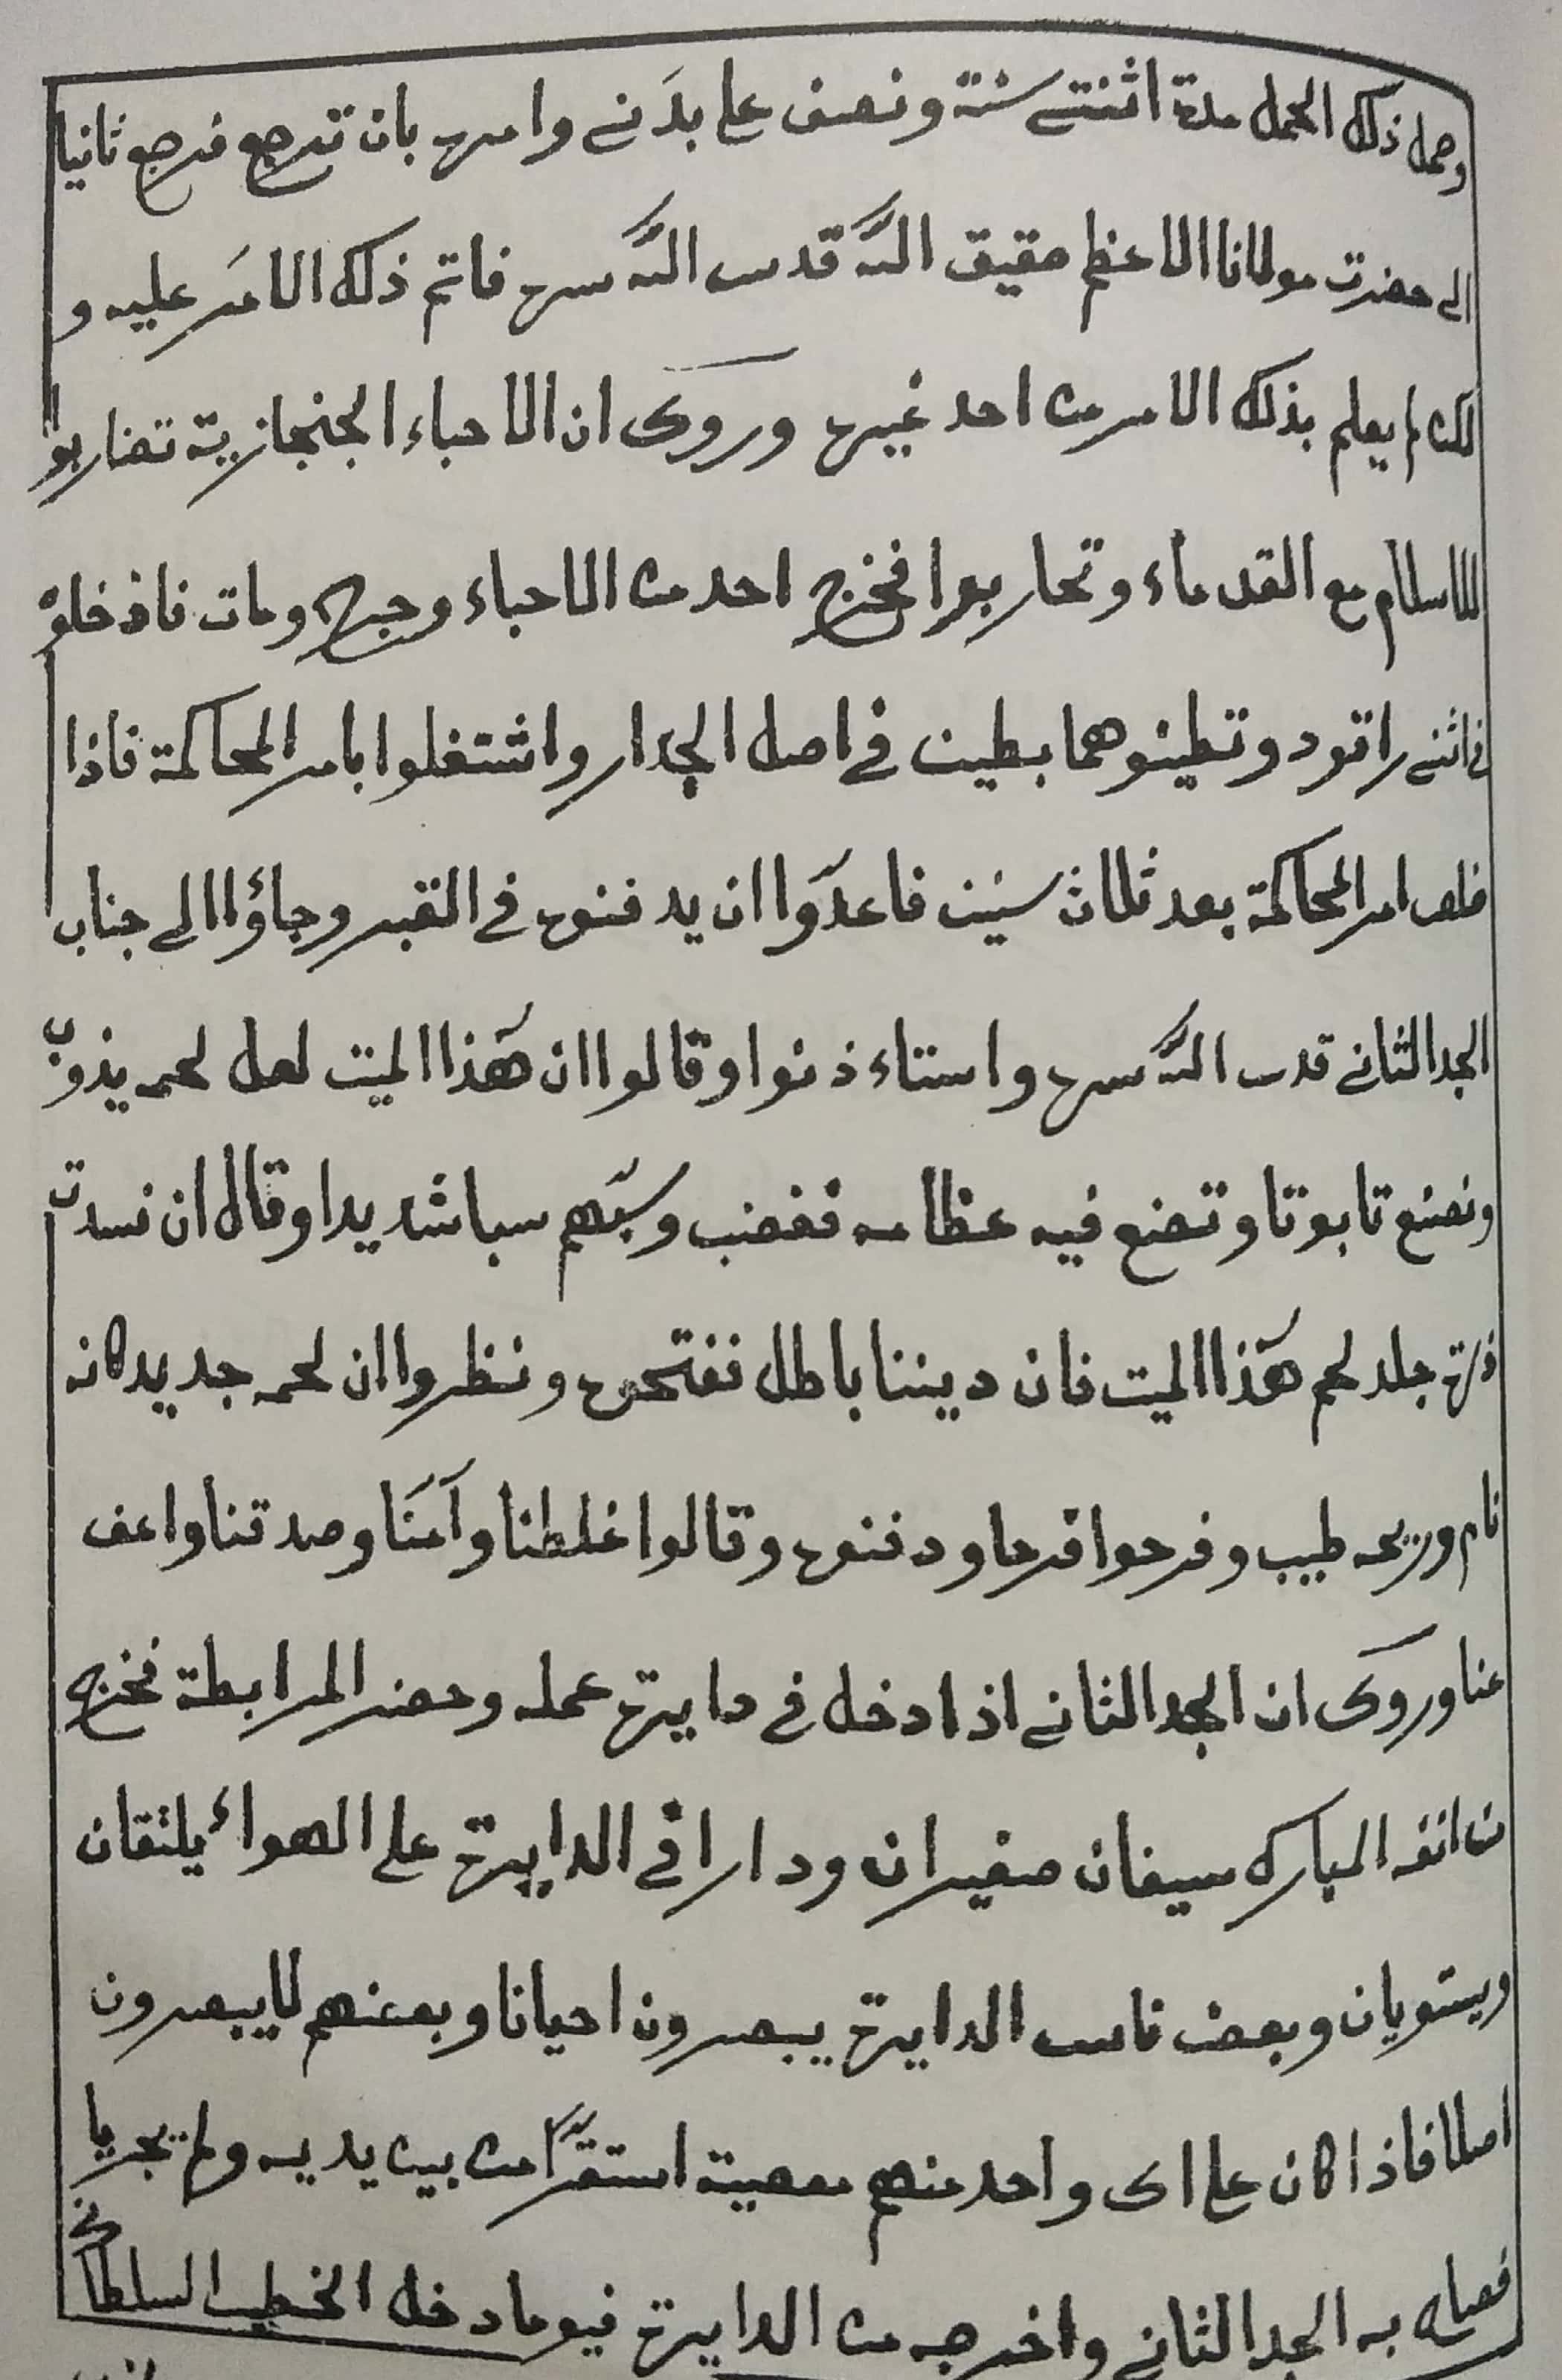 وحمل ذلك الحمل مدة اثنتے سنة ونصف علے بدنے وامره بان ترجع فرجع ثانيا
الے حضرت مولانا الاعظم حقيق الله قدس الله سره فاتم ذلك الامر عليه و
لكن لم يعلم بذلك الامر من احد غيره وروى ان الاحباء الجنجازية تضاربوا
للاسلام مع القدماء وتحاربوا فخرج احد من الاحباء وجرح ومات فادخلوه
فے اثنے راتود وتطينوهما بطين فے اصل الجدار واشتغلوا بامر المحاكمة فاذا
خلص امر المحاكمة بعد ثلاث سنين فاعدّوا ان يدفنوه فے القبر وجاؤا الے جناب
الجد الثانے قدس الله سره واستاءذنوا وقالوا ان هذا الميت لعل لحمه يذوب
ونصنع تابوتا وتضع فيه عظامه فغضب وسبّهم سبا شديدا وقال ان فسدت
ذرة جلد لحم هذا الميت فان ديننا باطل ففتحوه ونظروا ان لحمه جديد كانه
نام وريحه طيب وفرحوا فرحا ودفنوه وقالوا غلطنا وآمنا وصدقنا واعف
عنا وروى ان الجد الثانے اذا دخل فے دايرة عمله وحضر المرابطة فخرج
من انفه المبارك سيفان صغيران ودارا فے الدايرة علے الهواء يلتقان
ويستويان وبعض ناس الدايرة يبصرون احيانا وبعضهم لا يبصرون
اصلا فاذا كان علے اى واحد منهم معصية استقرّا من بين يديه ولم يجريا
به الجد الثانے واخرجه من الدايرة فيوما دخل الخطيب السلطانے